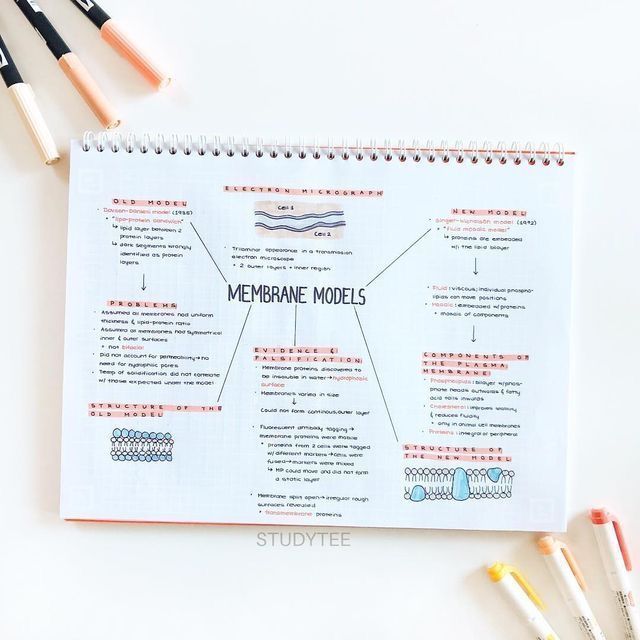 ELECTRON MICROGRAPH
Cell 1
Cell 2
• Trilaminar appearance in a transmission
electron microscope
• 2 outer layers + inner region
OLD MODEL
• Davson-Danielli model (1935)
• "lipo-protein sandwich"
↳ lipid layer between 2
protein layers
↳ dark segments wrongly
identified as protein
layers
PROBLEMS
• Assumed all membranes had uniform
thickness & lipid-protein ratio
• Assumed all membranes had symmetrical
inner & outer surfaces
• not bifacial
• Did not account for permeability → no
need for hydrophilic pores
• Temp of solidification did not correlate
w/ those expected under the model
STRUCTURE OF THE
OLD MODEL
MEMBRANE MODELS
EVIDENCE &
FALSIFICATION
• Membrane proteins discovered to
be insoluble in water → hydrophobic
surface
• Membranes varies in size
Could not form continuous outer layer
• Fluorescent antibody tagging →
membrane proteins were mobile
• proteins from 2 cells were tagged
w/ different markers → cells were
fused → markers were mixed
↳ MP could move and did not form
a static layer
• Membrane split open → irregular rough
surfaces revealed
• transmembrane proteins
NEW MODEL
• Singer-Nicholson model (1972)
• "fluid mosaic model"
↳ proteins are embedded
w/i the lipid bilayer
Fluid: viscous; individual phospho-
lipids can move positions
Mosaic: embedded w/ proteins
• mosaic of components
COMPONENTS OF
THE PLASMA
MEMBRANE
• Phospholipids: bilayer w/ phos-
phate heads outwards & fatty
acid tails inwards
• Cholesterol: improves stability
& reduces fluidity
• only in animal cell membranes
• Proteins: integral or peripheral
STRUCTURE OF
THE NEW MODEL
STUDYTEE